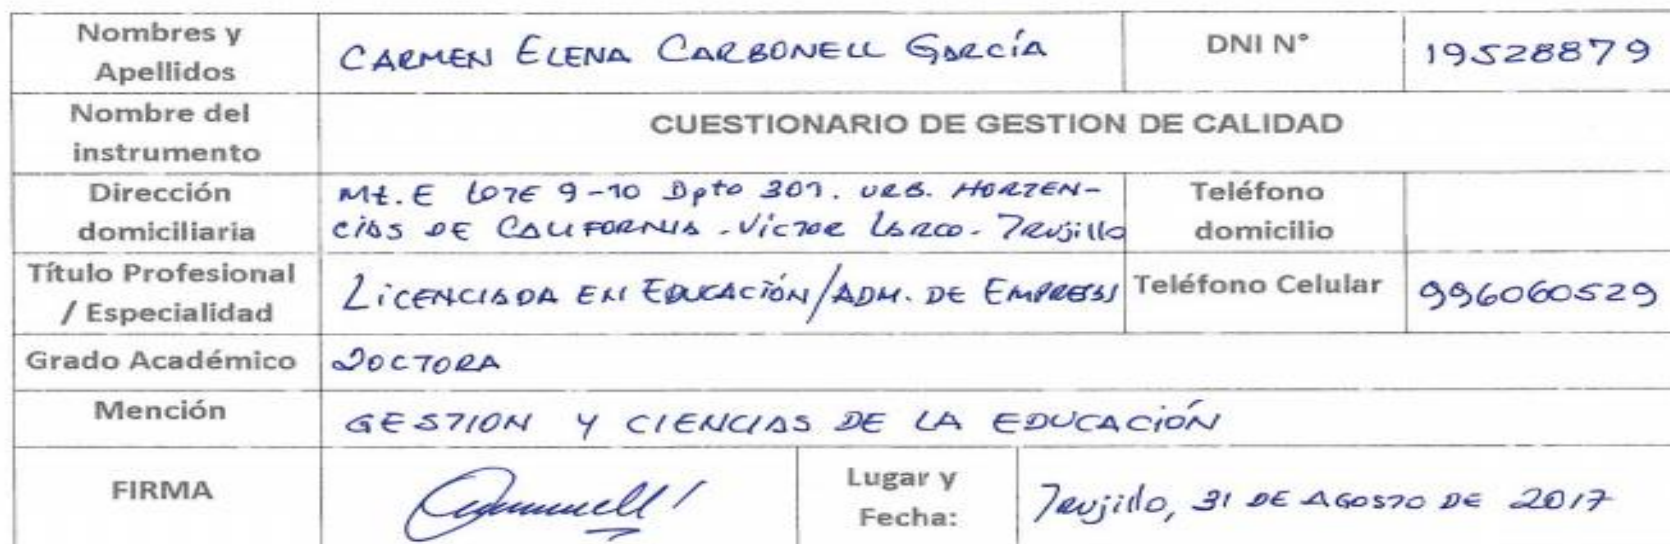 Nombres y Apellidos CARMEN ELENA CARBONELL GARCÍA DNI N° 19528879
Nombre del instrumento CUESTIONARIO DE GESTION DE CALIDAD
Dirección domiciliaria Mz. E LOTE 9-10 Dpto 301. URB. HORTEN-
CIAS DE CALIFORNIA - Víctor LARCO - Trujillo Teléfono domicilio
Título Profesional / Especialidad LICENCIADA EN EDUCACIÓN/ADM. DE EMPRESAS Teléfono Celular 996060529
Grado Académico DOCTORA
Mención GESTION Y CIENCIAS DE LA EDUCACIÓN
FIRMA Lugar y Fecha: Trujillo, 31 DE AGOSTO DE 2017